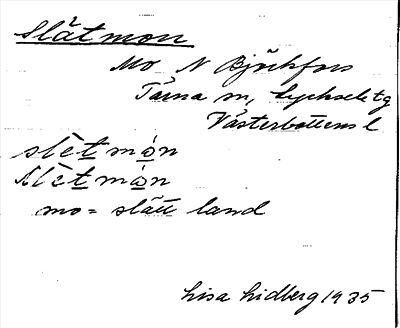 Slätmon
Mo N Björkfors
Tärna sn, Lycksele tg
Västerbottens l
slètmo̱n
slètmån
mo = slätt land
Lisa Lidberg 1935